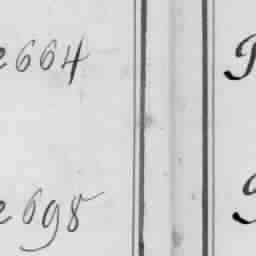 e 664
e 698